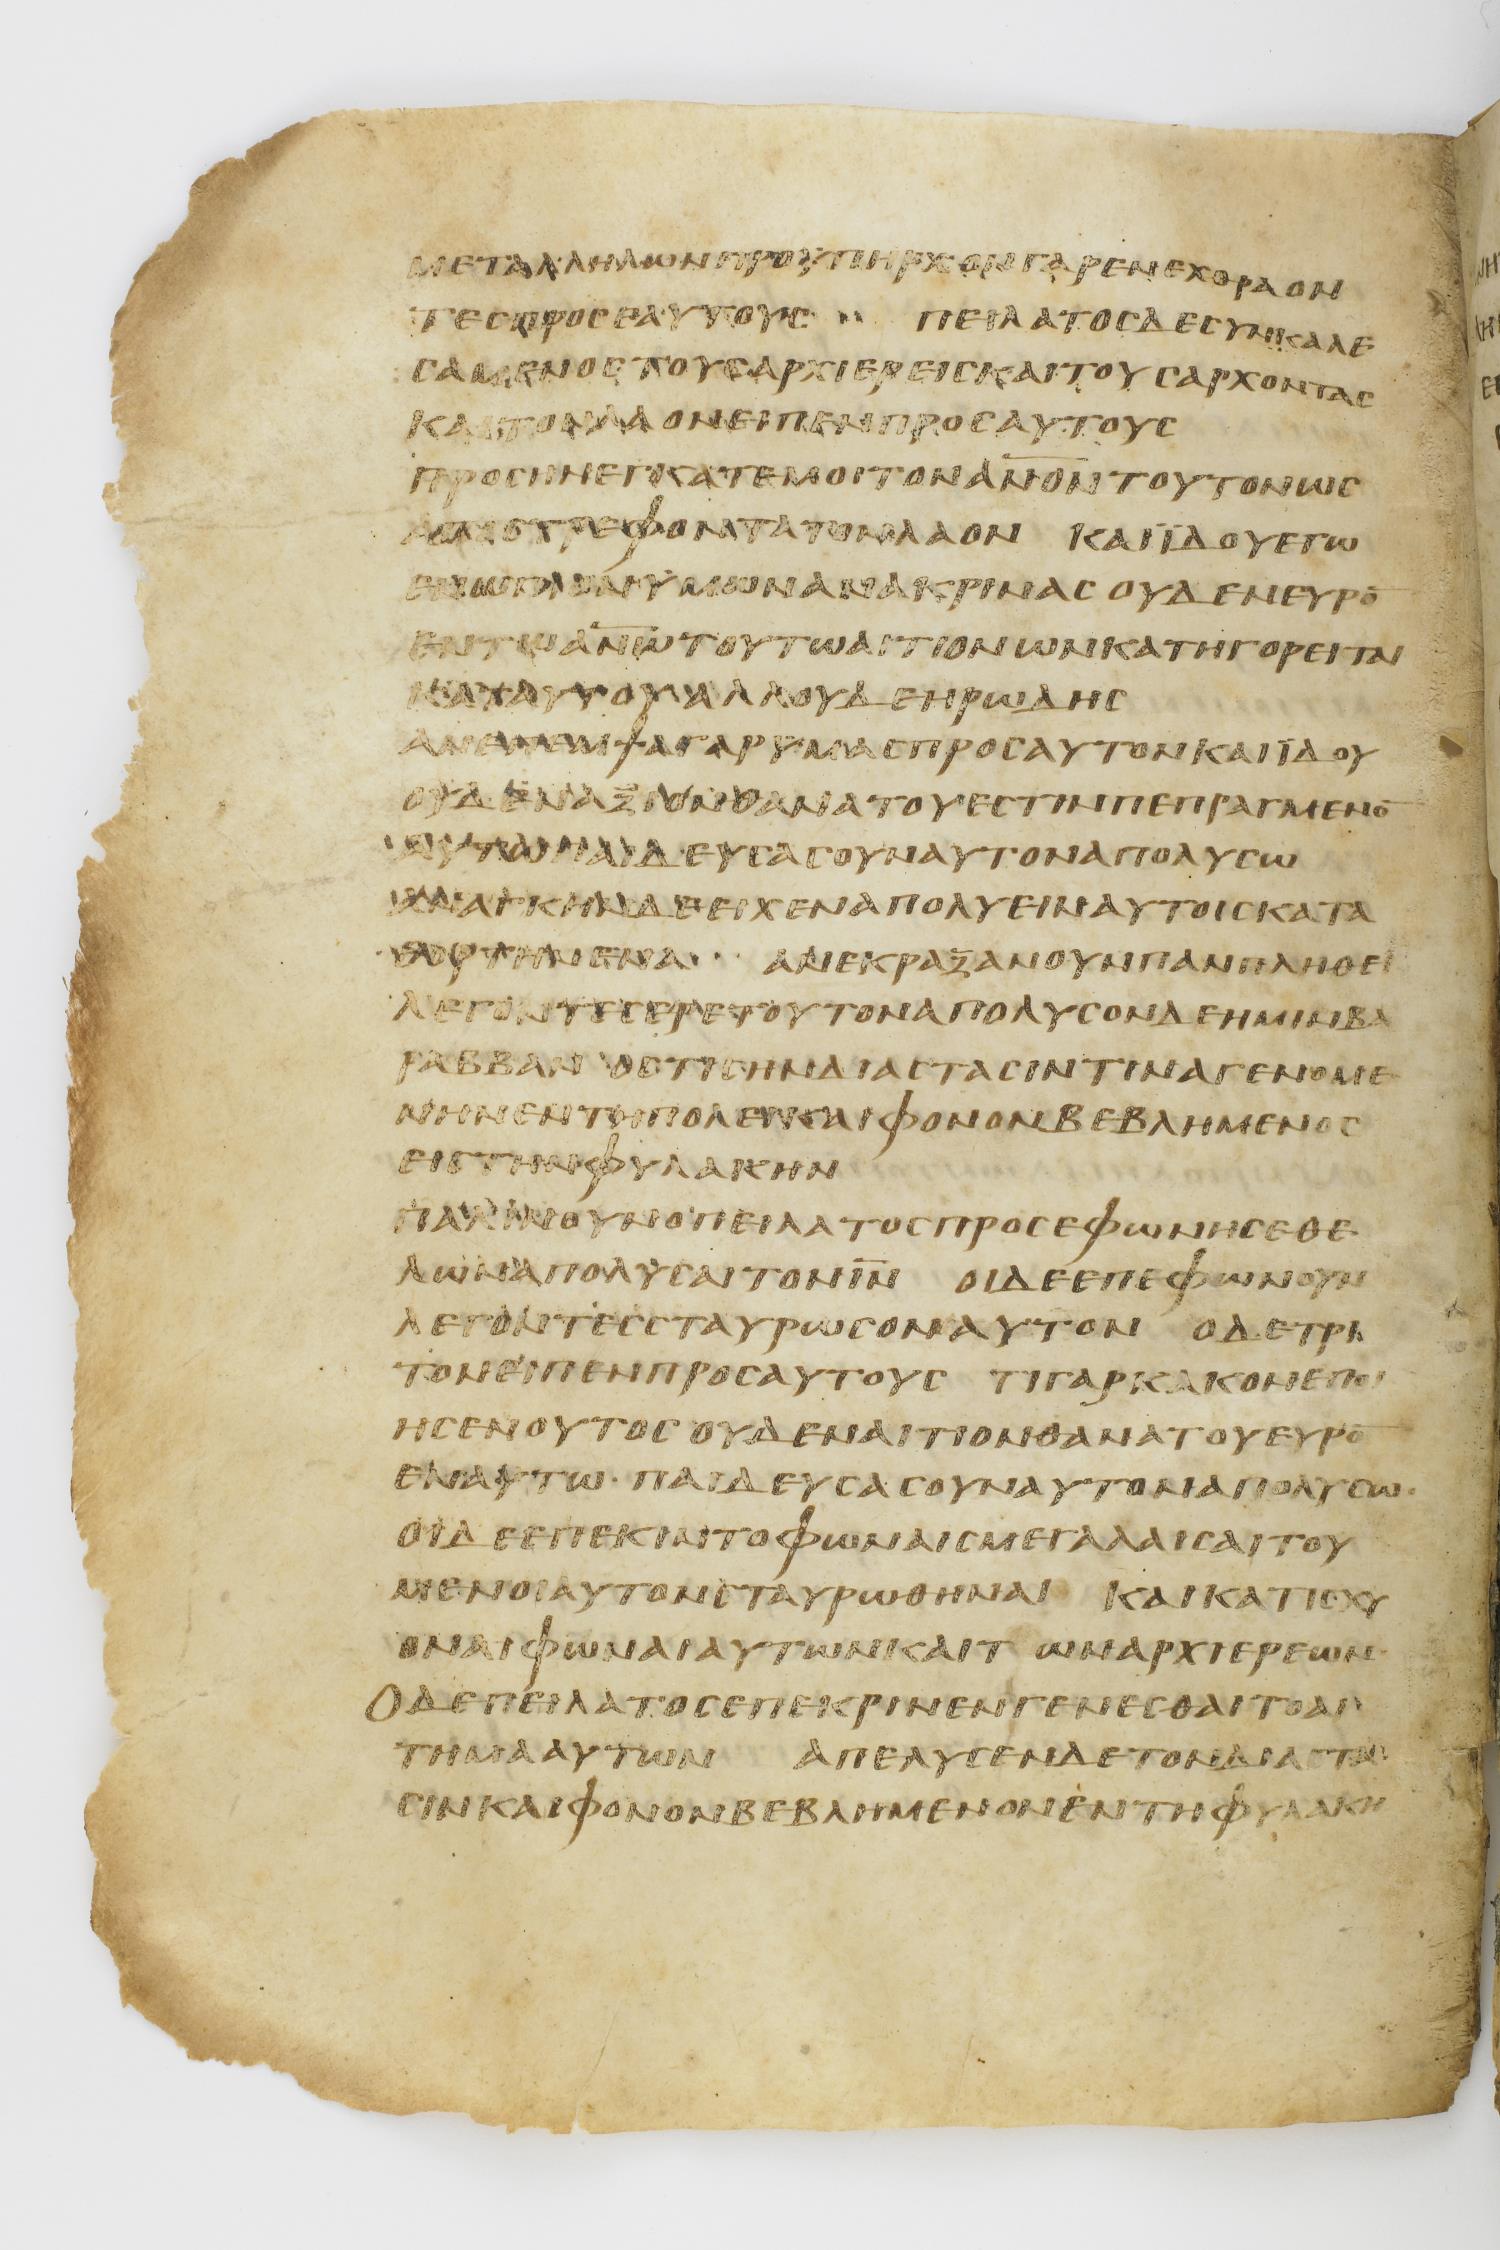 ΜΕΤΑΛΛΗΛΩΝΠΡΟΫΠΗΡΧΟΝΓΑΡΕΝΕΧΘΡΑΟΝ
ΤΕΣΠΡΟΣΕΑΥΤΟΥΣ ΠΕΙΛΑΤΟΣΔΕΣΥΝΚΑΛΕ
ΣΑΜΕΝΟΣΤΟΥΣΑΡΧΙΕΡΕΙΣΚΑΙΤΟΥΣΑΡΧΟΝΤΑΣ
ΚΑΙΤΟΝΛΑΟΝΕΙΠΕΝΠΡΟΣΑΥΤΟΥΣ
ΠΡΟΣΗΝΕΓΚΑΤΕΜΟΙΤΟΝΑΝ̅Ο̅Ν̅ΤΟΥΤΟΝΩΣ
ΑΠΟΣΤΡΕΦΟΝΤΑΤΟΝΛΑΟΝ ΚΑΙΪΔΟΥΕΓΩ
ΕΝΩΠΙΟΝΥΜΩΝΑΝΑΚΡΙΝΑΣΟΥΔΕΝΕΥΡΟ̅
ΕΝΤΩΑΝ̅Ω̅ΤΟΥΤΩΑΙΤΙΟΝΩΝΚΑΤΗΓΟΡΕΙΤΑΙ
ΚΑΤΑΥΤΟΥΑΛΛΟΥΔΕΗΡΩΔΗΣ
ΑΝΕΠΕΜΨΑΓΑΡΥΜΑΣΠΡΟΣΑΥΤΟΝΚΑΙΪΔΟΥ
ΟΥΔΕΝΑΞΙΟΝΘΑΝΑΤΟΥΕΣΤΙΝΠΕΠΡΑΓΜΕΝΟ̅
ΑΥΤΩΠΑΙΔΕΥΣΑΣΟΥΝΑΥΤΟΝΑΠΟΛΥΣΩ
ΑΝΑΓΚΗΝΔΕΕΙΧΕΝΑΠΟΛΥΕΙΝΑΥΤΟΙΣΚΑΤΑ
ΕΟΡΤΗΝΕΝΑ ΑΝΕΚΡΑΞΑΝΟΥΝΠΑΝΠΛΗΘΕΙ
ΛΕΓΟΝΤΕΣΕΡΕΤΟΥΤΟΝΑΠΟΛΥΣΟΝΔΕΗΜΙΝΒΑ
ΡΑΒΒΑΝ ΟΣΤΙΣΗΝΔΙΑΣΤΑΣΙΝΤΙΝΑΓΕΝΟΜΕ
ΝΗΝΕΝΤΗΠΟΛΕΙΚΑΙΦΟΝΟΝΒΕΒΛΗΜΕΝΟΣ
ΕΙΣΤΗΝΦΥΛΑΚΗΝ
ΠΑΛΙΝΟΥΝΟΠΕΙΛΑΤΟΣΠΡΟΣΕΦΩΝΗΣΕΘΕ
ΛΩΝΑΠΟΛΥΣΑΙΤΟΝΙ̅Ν̅ ΟΙΔΕΕΠΕΦΩΝΟΥΝ
ΛΕΓΟΝΤΕΣΣΤΑΥΡΩΣΟΝΑΥΤΟΝ ΟΔΕΤΡΙ
ΤΟΝΕΙΠΕΝΠΡΟΣΑΥΤΟΥΣ ΤΙΓΑΡΚΑΚΟΝΕΠΟΙ
ΗΣΕΝΟΥΤΟΣΟΥΔΕΝΑΙΤΙΟΝΘΑΝΑΤΟΥΕΥΡΟ̅
ΕΝΑΥΤΩ·ΠΑΙΔΕΥΣΑΣΟΥΝΑΥΤΟΝΑΠΟΛΥΣΩ·
ΟΙΔΕΕΠΕΚΙΝΤΟΦΩΝΑΙΣΜΕΓΑΛΑΙΣΑΙΤΟΥ
ΜΕΝΟΙΑΥΤΟΝΣΤΑΥΡΩΘΗΝΑΙ ΚΑΙΚΑΤΙΣΧΥ
ΟΝΑΙΦΩΝΑΙΑΥΤΩΝΚΑΙΤΩΝΑΡΧΙΕΡΕΩΝ·
ΟΔΕΠΕΙΛΑΤΟΣΕΠΕΚΡΙΝΕΝΓΕΝΕΣΘΑΙΤΟΑΙ
ΤΗΜΑΑΥΤΩΝ ΑΠΕΛΥΣΕΝΔΕΤΟΝΔΙΑΣΤΑ
ΣΙΝΚΑΙΦΟΝΟΝΒΕΒΛΗΜΕΝΟΝΕΝΤΗΦΥΛΑΚΗ